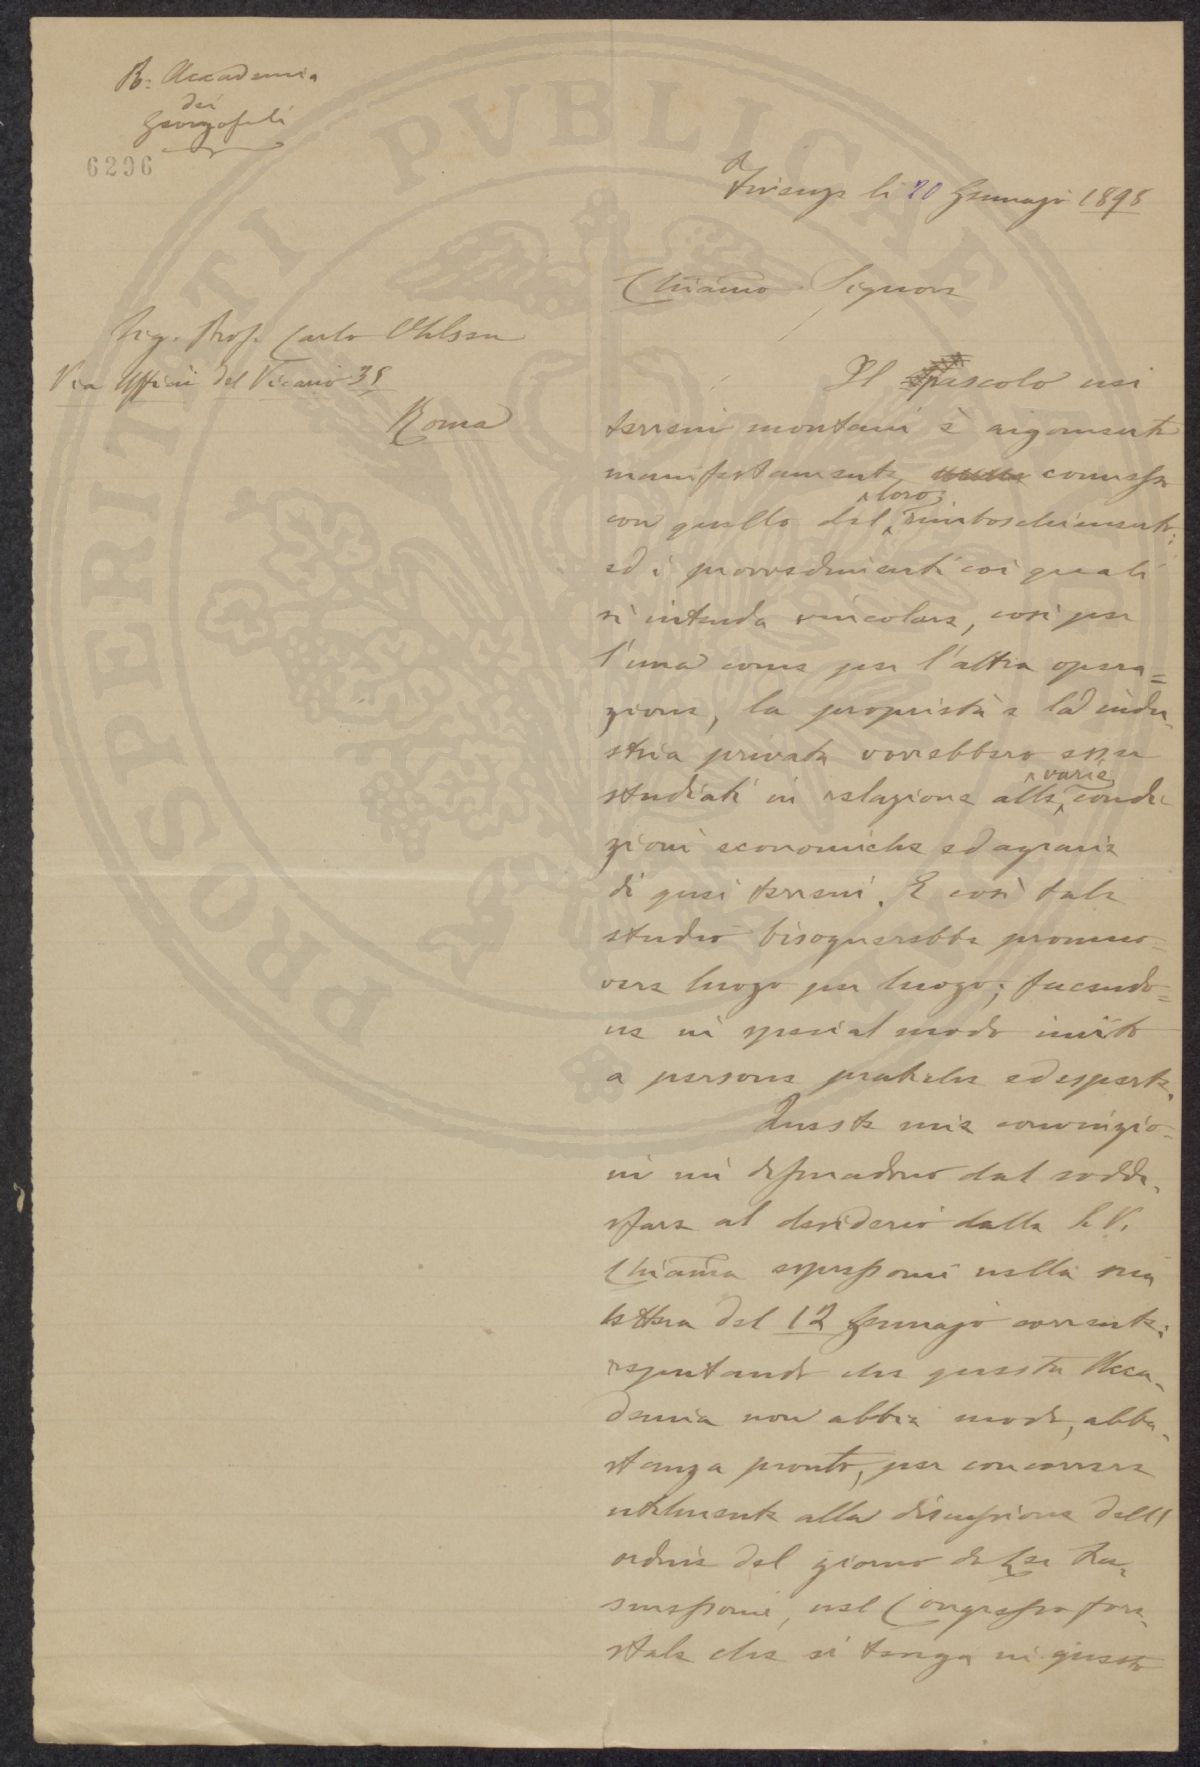 R. Accademia
dei
Georgofili
6296
Firenze li 20 Gennajo 1898
Chiamo Signore
Sig. Prof. Carlo Ohlsen
Via Uffici del Vicario 35
Roma
Il pascolo nei
terreni montani è argomento
manifestamente connesso
con quello del loro rimboschimento;
ed i provvedimenti coi quali
si intenda vincolare, così per
l'una come per l'altra opera=
zione, la proprietà e la indu-
stria privata vorrebbero esser
studiati in relazione alle varie condi-
zioni economiche ed agrarie
di quei terreni. E così tale
studio bisognerebbe promuo=
vere luogo per luogo; facendo=
ne in special modo invito
a persone pratiche ed esperte.
Queste mie convinzio=
ni mi
dal soddi-
sfare al desiderio dalla S. V.
Chiama espressomi nella sua
lettera del 12 Gennajo corrente;
reputando che questa Acca-
demia non abbia modo, abba-
stanza pronto, per concorrere
utilmente alla discussione dell'
ordine del giorno da Lei tra-
smessomi, nel Congresso fore-
stale che si tenga in questo
PROSPERITATI PVBLICAE